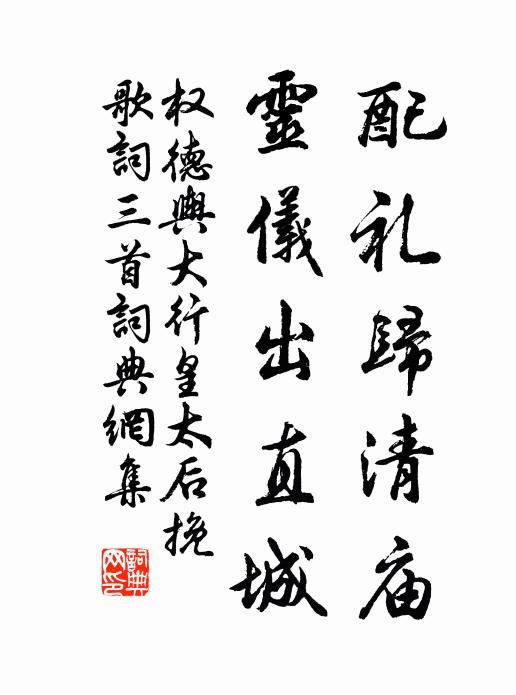 配礼歸清庙
靈儀出直城
权德輿大行皇太后挽
歌詞三首詞典網集
詞典网印